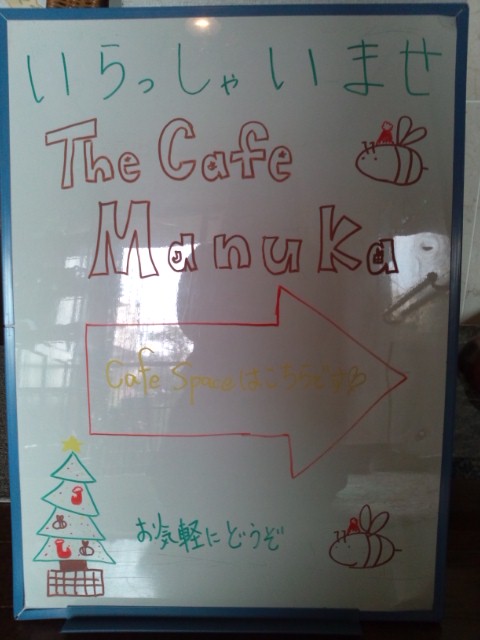 いらっしゃいませ
The Cafe
Manuka
Cafe Spaceはこちらです♡
お気軽にどうぞ